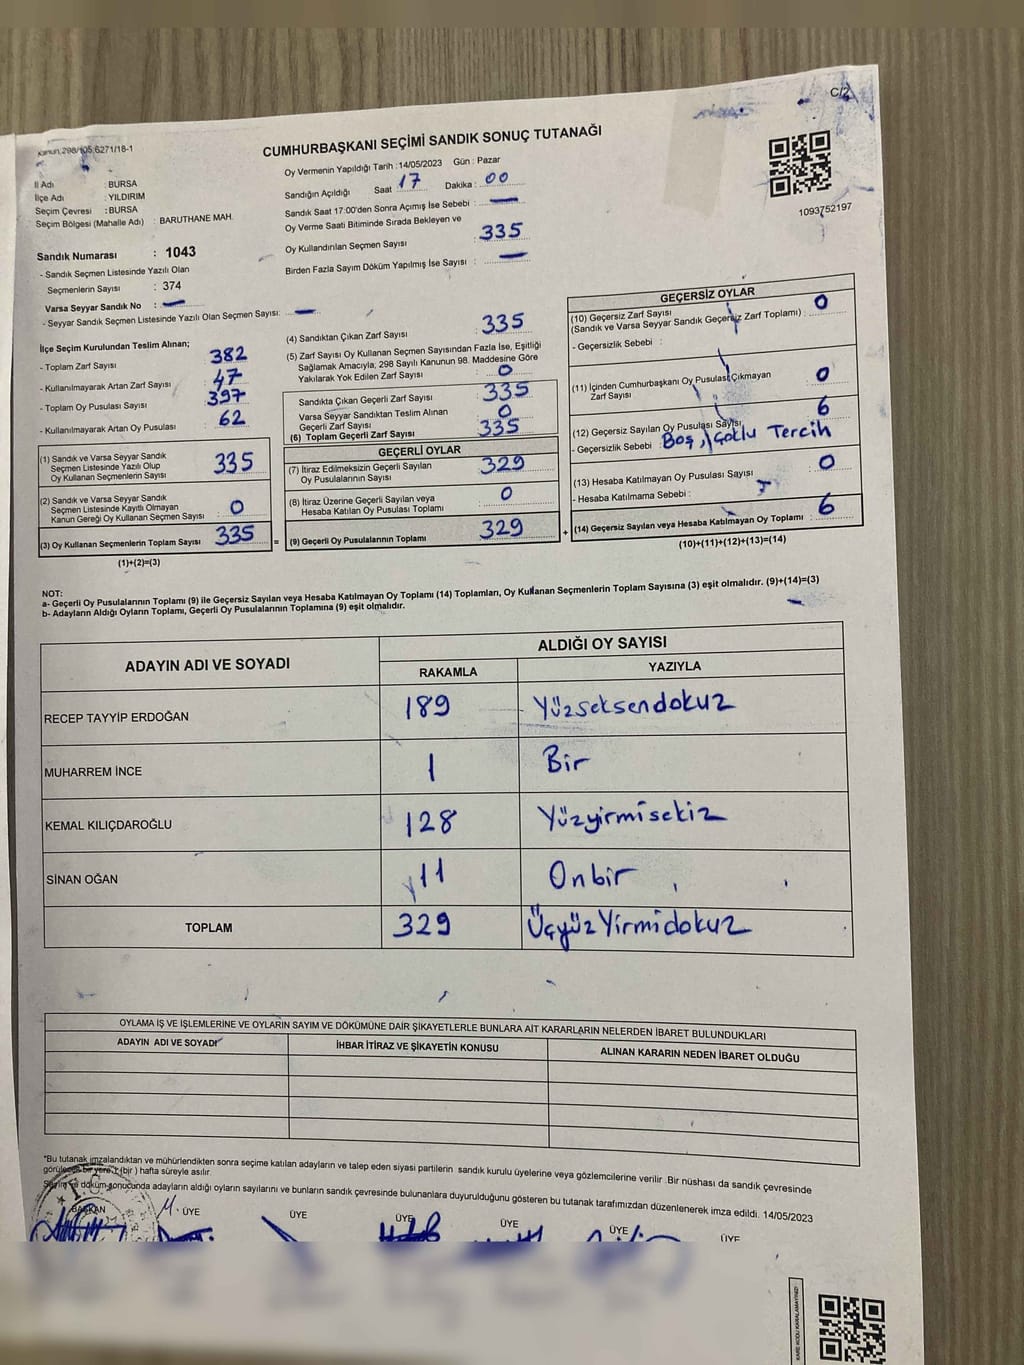 C/2
Kanun:298/105;6271/18-1
CUMHURBAŞKANI SEÇİMİ SANDIK SONUÇ TUTANAĞI
İl Adı : BURSA
İlçe Adı : YILDIRIM
Seçim Çevresi : BURSA
Seçim Bölgesi (Mahalle Adı) : BARUTHANE MAH.
Sandık Numarası : 1043
- Sandık Seçmen Listesinde Yazılı Olan
Seçmenlerin Sayısı : 374
Varsa Seyyar Sandık No :
- Seyyar Sandık Seçmen Listesinde Yazılı Olan Seçmen Sayısı:
Oy Vermenin Yapıldığı Tarih :14/05/2023 Gün : Pazar
Sandığın Açıldığı Saat 17 Dakika : 00
Sandık Saat 17:00'den Sonra Açımış İse Sebebi :
Oy Verme Saati Bitiminde Sırada Bekleyen ve
Oy Kullandırılan Seçmen Sayısı : 335
Birden Fazla Sayım Döküm Yapılmış İse Sayısı :
1093752197
İlçe Seçim Kurulundan Teslim Alınan;
- Toplam Zarf Sayısı 382
- Kullanılmayarak Artan Zarf Sayısı 47
- Toplam Oy Pusulası Sayısı 397
- Kullanılmayarak Artan Oy Pusulası 62
(1) Sandık ve Varsa Seyyar Sandık
Seçmen Listesinde Yazılı Olup
Oy Kullanan Seçmenlerin Sayısı 335
(2) Sandık ve Varsa Seyyar Sandık
Seçmen Listesinde Kayıtlı Olmayan
Kanun Gereği Oy Kullanan Seçmen Sayısı 0
(3) Oy Kullanan Seçmenlerin Toplam Sayısı 335 =
(1)+(2)=(3)
(4) Sandıktan Çıkan Zarf Sayısı 335
(5) Zarf Sayısı Oy Kullanan Seçmen Sayısından Fazla İse, Eşitliği
Sağlamak Amacıyla, 298 Sayılı Kanunun 98. Maddesine Göre
Yakılarak Yok Edilen Zarf Sayısı : 0
Sandıkta Çıkan Geçerli Zarf Sayısı 335
Varsa Seyyar Sandıktan Teslim Alınan
Geçerli Zarf Sayısı 0
(6) Toplam Geçerli Zarf Sayısı 335
GEÇERLİ OYLAR
(7) İtiraz Edilmeksizin Geçerli Sayılan
Oy Pusulalarının Sayısı 329
(8) İtiraz Üzerine Geçerli Sayılan veya
Hesaba Katılan Oy Pusulası Toplamı 0
(9) Geçerli Oy Pusulalarının Toplamı 329 +
GEÇERSİZ OYLAR
(10) Geçersiz Zarf Sayısı
(Sandık ve Varsa Seyyar Sandık Geçersiz Zarf Toplamı) : 0
- Geçersizlik Sebebi :
(11) İçinden Cumhurbaşkanı Oy Pusulası Çıkmayan
Zarf Sayısı 0
(12) Geçersiz Sayılan Oy Pusulası Sayısı 6
- Geçersizlik Sebebi : Boş, Çoklu Tercih
(13) Hesaba Katılmayan Oy Pusulası Sayısı 0
- Hesaba Katılmama Sebebi :
(14) Geçersiz Sayılan veya Hesaba Katılmayan Oy Toplamı 6
(10)+(11)+(12)+(13)=(14)
NOT:
a- Geçerli Oy Pusulalarının Toplamı (9) ile Geçersiz Sayılan veya Hesaba Katılmayan Oy Toplamı (14) Toplamları, Oy Kullanan Seçmenlerin Toplam Sayısına (3) eşit olmalıdır. (9)+(14)=(3)
b- Adayların Aldığı Oyların Toplamı, Geçerli Oy Pusulalarının Toplamına (9) eşit olmalıdır.
ADAYIN ADI VE SOYADI ALDIĞI OY SAYISI
RAKAMLA YAZIYLA
RECEP TAYYİP ERDOĞAN 189 Yüzseksendokuz
MUHARREM İNCE 1 Bir
KEMAL KILIÇDAROĞLU 128 Yüzyirmisekiz
SİNAN OĞAN 11 Onbir
TOPLAM 329 ÜçyüzYirmidokuz
OYLAMA İŞ VE İŞLEMLERİNE VE OYLARIN SAYIM VE DÖKÜMÜNE DAİR ŞİKAYETLERLE BUNLARA AİT KARARLARIN NELERDEN İBARET BULUNDUKLARI
ADAYIN ADI VE SOYADI İHBAR İTİRAZ VE ŞİKAYETİN KONUSU ALINAN KARARIN NEDEN İBARET OLDUĞU
*Bu tutanak imzalandıktan ve mühürlendikten sonra seçime katılan adayların ve talep eden siyasi partilerin sandık kurulu üyelerine veya gözlemcilerine verilir .Bir nüshası da sandık çevresinde
görülecek bir yere 1 (bir) hafta süreyle asılır.
Sayım ve döküm sonucunda adayların aldığı oyların sayılarını ve bunların sandık çevresinde bulunanlara duyurulduğunu gösteren bu tutanak tarafımızdan düzenlenerek imza edildi. 14/05/2023
BAŞKAN ÜYE ÜYE ÜYE ÜYE ÜYE ÜYE
KARE KODU KARALAMAYINIZ!